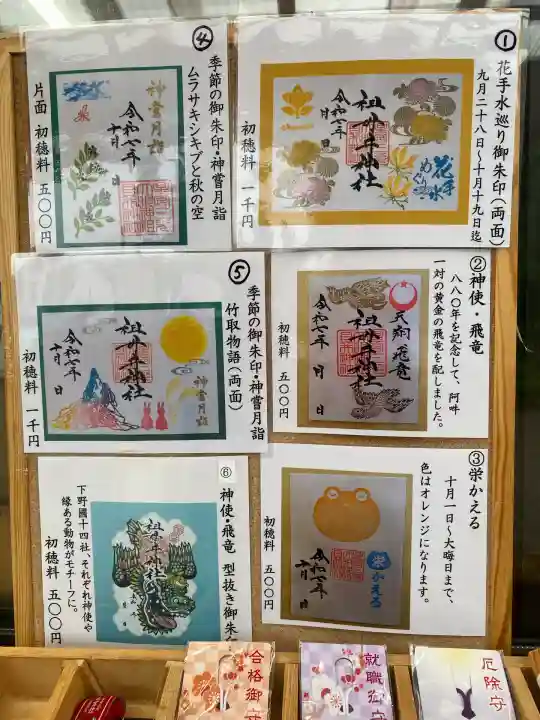 ①
花手水巡り御朱印(両面)
九月二十八日〜十月十九日迄
初穂料 一千円
令和七年
月 日
花手水
めぐり
②神使・飛竜
八八〇年を記念して、阿吽
一対の黄金の飛竜を配しました。
初穂料 五〇〇円
天翔 飛竜
令和七年
月 日
③栄かえる
十月一日〜大晦日まで、
色はオレンジになります。
初穂料 五〇〇円
栄かえる
令和七年
十月 日
④
季節の御朱印・神嘗月詣
ムラサキシキブと秋の空
片面 初穂料 五〇〇円
神嘗月詣
令和七年
十月 日
⑤
季節の御朱印・神嘗月詣
竹取物語(両面)
初穂料 一千円
神嘗月詣
令和七年
月 日
⑥
神使・飛竜 型抜き御朱
下野國十四社、それぞれ神使や
縁ある動物がモチーフに。
初穂料 五〇〇円
合格御守
就職御守
厄除守